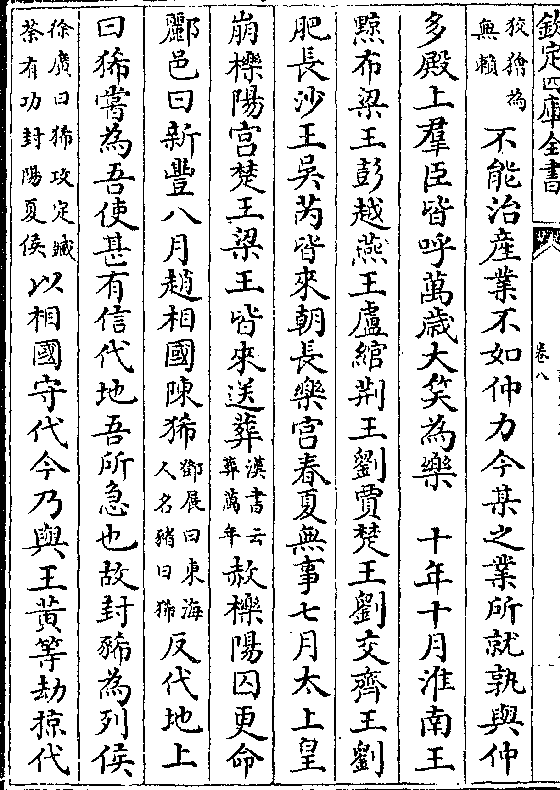 欽定四庫全書
卷八
狡獪為
無賴
不能治産業不如仲力今某之業所就孰與仲
多殿上羣臣皆呼萬歲大笑為樂　十年十月淮南王
黥布梁王彭越燕王盧綰荆王劉賈楚王劉交齊王劉
肥長沙王吳芮皆來朝長樂宫春夏無事七月太上皇
崩櫟陽宫楚王梁王皆來送葬
漢書云
葬萬年
赦櫟陽囚更命
酈邑曰新豐八月趙相國陳狶
鄧展曰東海
人名豬曰狶
反代地上
曰狶嘗為吾使甚有信代地吾所急也故封豨為列侯
徐廣曰狶攻定臧
荼有功封陽夏侯
以相國守代今乃與王黄等劫掠代